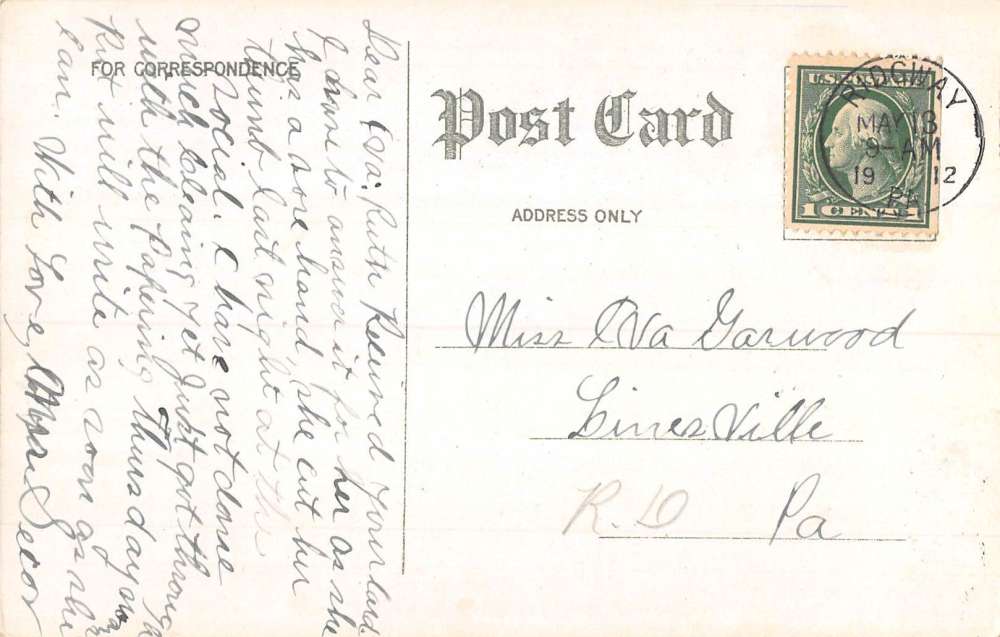 FOR CORRESPONDENCE
Dear Eva: Ruth Received your card.
I have to answer it for her as she
has a sore hand, she cut her
thumb last night at the
social. I have not done
much cleaning yet Just got through
with the papering Thursday
Ruth will write as soon as she
can. With Love, Secor
Post Card
ADDRESS ONLY
U.S. POSTAGE
1 CENT 1
RIDGWAY
MAY 18
9-AM
19 12
PA.
Miss Eva Garwood
LinesVille
R. D Pa